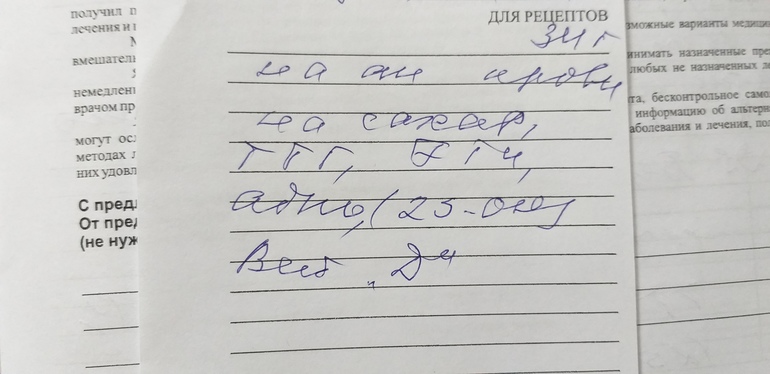 получил п
лечения и п
вмешатель
немедлен
врачом пр
могут осл
методах л
них удовл
С пред
От пред
(не нуж
ДЛЯ РЕЦЕПТОВ
на ан крови
на сахар,
ТТГ,
(25-он)
Вит "Д"
зможные варианты медици
инимать назначенные пре
любых не назначенных л
та, бесконтрольное само
информацию об альтерн
аболевания и лечения, по